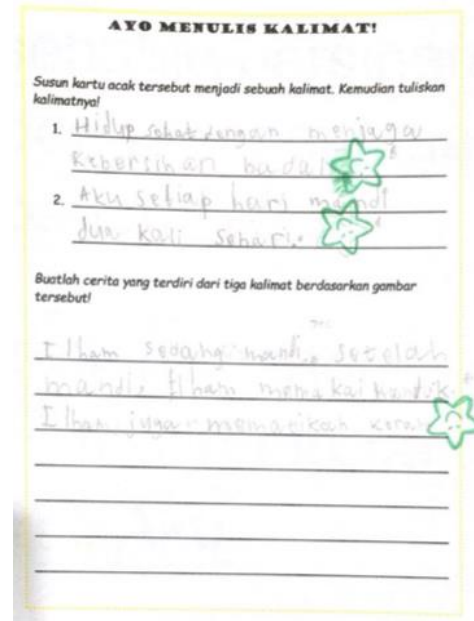 AYO MENULIS KALIMAT!
Susun kartu acak tersebut menjadi sebuah kalimat. Kemudian tuliskan
kalimatnya!
1. Hidup sehat dengan menjaga
Kebersihan badan
2. Aku setiap hari mandi
dua kali sehari.
Buatlah cerita yang terdiri dari tiga kalimat berdasarkan gambar
tersebut!
Ilham sedang mandi. Setelah
mandi, Ilham memakai handuk.
Ilham juga mematikan keran